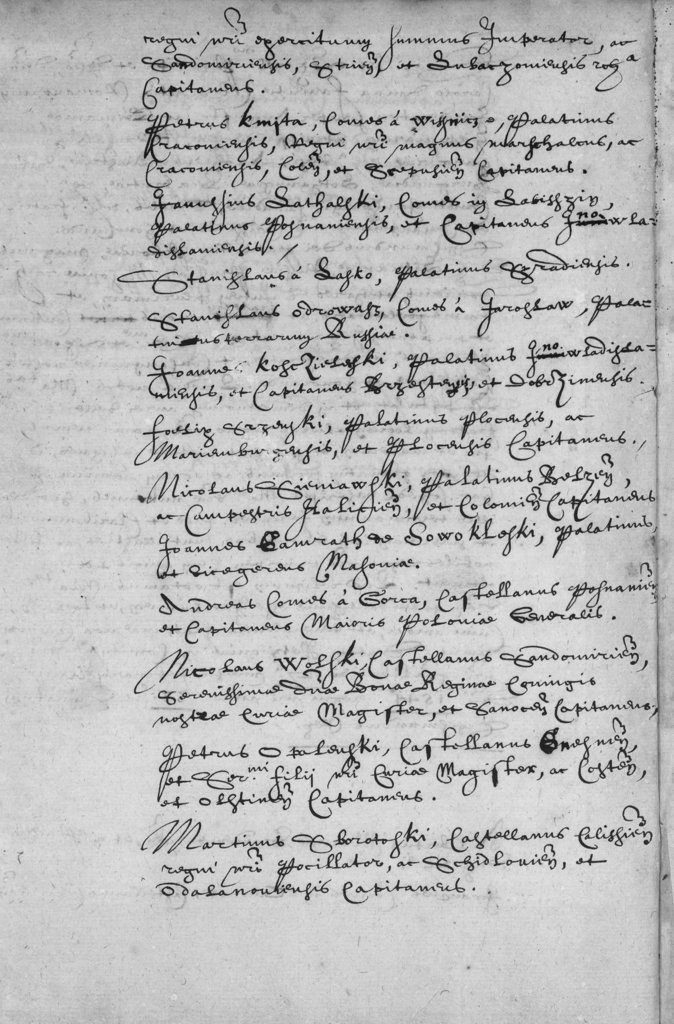 regni nrĩ exercituum summus Imperator, ac
Sandomiriensis, Strień, et Lubaczoniensis
Capitaneus.
Petrus kmita, Comes á Wisnicz, Palatinus
Kraconiensis, Regni nrĩ magnus marschalcus, ac
Craconiensis, Coleñ, et Scepusieñ Capitaneus.
Janussius Lathalski, Comes in Labisszin,
Palatinus Posnaniensis, et Capitaneus Junowla-
dislaniensis.
Stanislaus á Lasko, Palatinus Syradiensis.
Stanislaus Odrowasz, Comes á Jaroslaw, Pala-
tinus terrarum Russiae.
Joannes koscZieleski, Palatinus Junowladisla-
niensis, et Capitaneus et DobrZinensis.
Foelix Srzenski, Palatinus Plocensis, ac
Marienburgensis, et Plocensis Capitaneus.
Nicolaus Sieniawski, Palatinus Belzeñ,
ac Campestris Halicieñ, et Colomieñ Capitaneus
Joannes Gamrath de Sowokleski, Palatinus,
et vicegerens Masoniae.
Andreas Comes á Gorca, Castellanus Posnanieñ
et Capitaneus Maioris Poloniae Generalis.
Nicolaus Wolski, Castellanus Sandomirieñ,
Serenissimae Dñae Bonae Reginae Coniugis
nostrae Curiae Magister, et Sanoceñ Capitaneus,
Petrus Opalenski, Castellanus Gnesneñ,
et Ser<sup>mi</sup> filij nrĩ Curiae Magister, ac Costeñ,
et Olstineñ Capitaneus.
Martinus Sborotoski, Castellanus Calissieñ
regni nrĩ Pocillator, ac Schidlonieñ, et
Odalanoniensis Capitaneus.